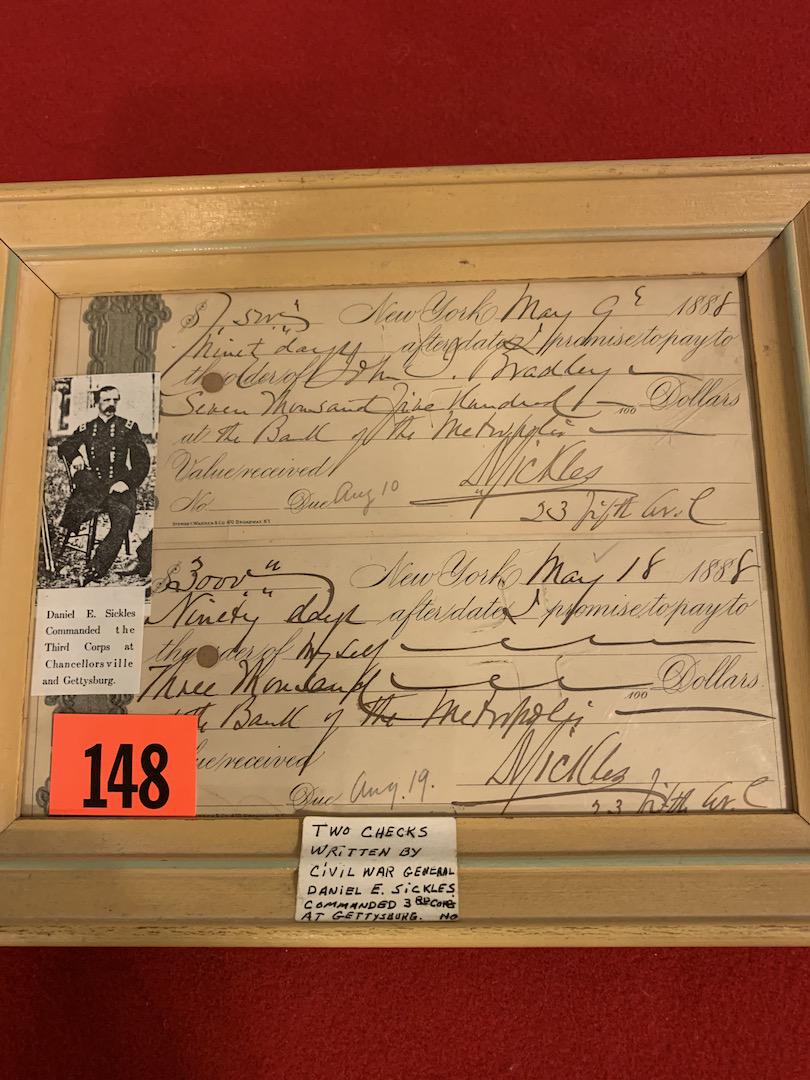 $7500" New York May 9 1888
Ninety days after date I promise to pay to
the order of John Bradley
Seven Thousand Five Hundred /100 Dollars
at the Bank of the Metropolis
Value received DSickles
No. Due Aug 10
23 Fifth Av.
STUMPF
$3000" New York May 18 1888
Ninety days after date I promise to pay to
the order of Myself
Three Thousand /100 Dollars
the Bank of the Metropolis
received DSickles
Due Aug. 19. 23 Fifth Av.
Daniel E. Sickles
Commanded the
Third Corps at
Chancellorsville
and Gettysburg.
148
TWO CHECKS
WRITTEN BY
CIVIL WAR GENERAL
DANIEL E. SICKLES
COMMANDED 3RD CORP
AT GETTYSBURG. NO